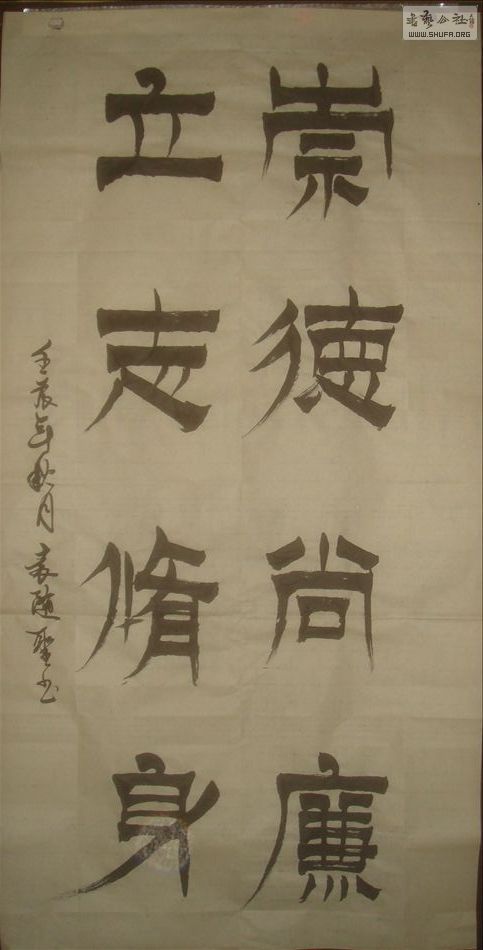 崇德尚廉
立志脩身
壬辰年秋月 袁随聖书
书艺公社
WWW.SHUFA.ORG